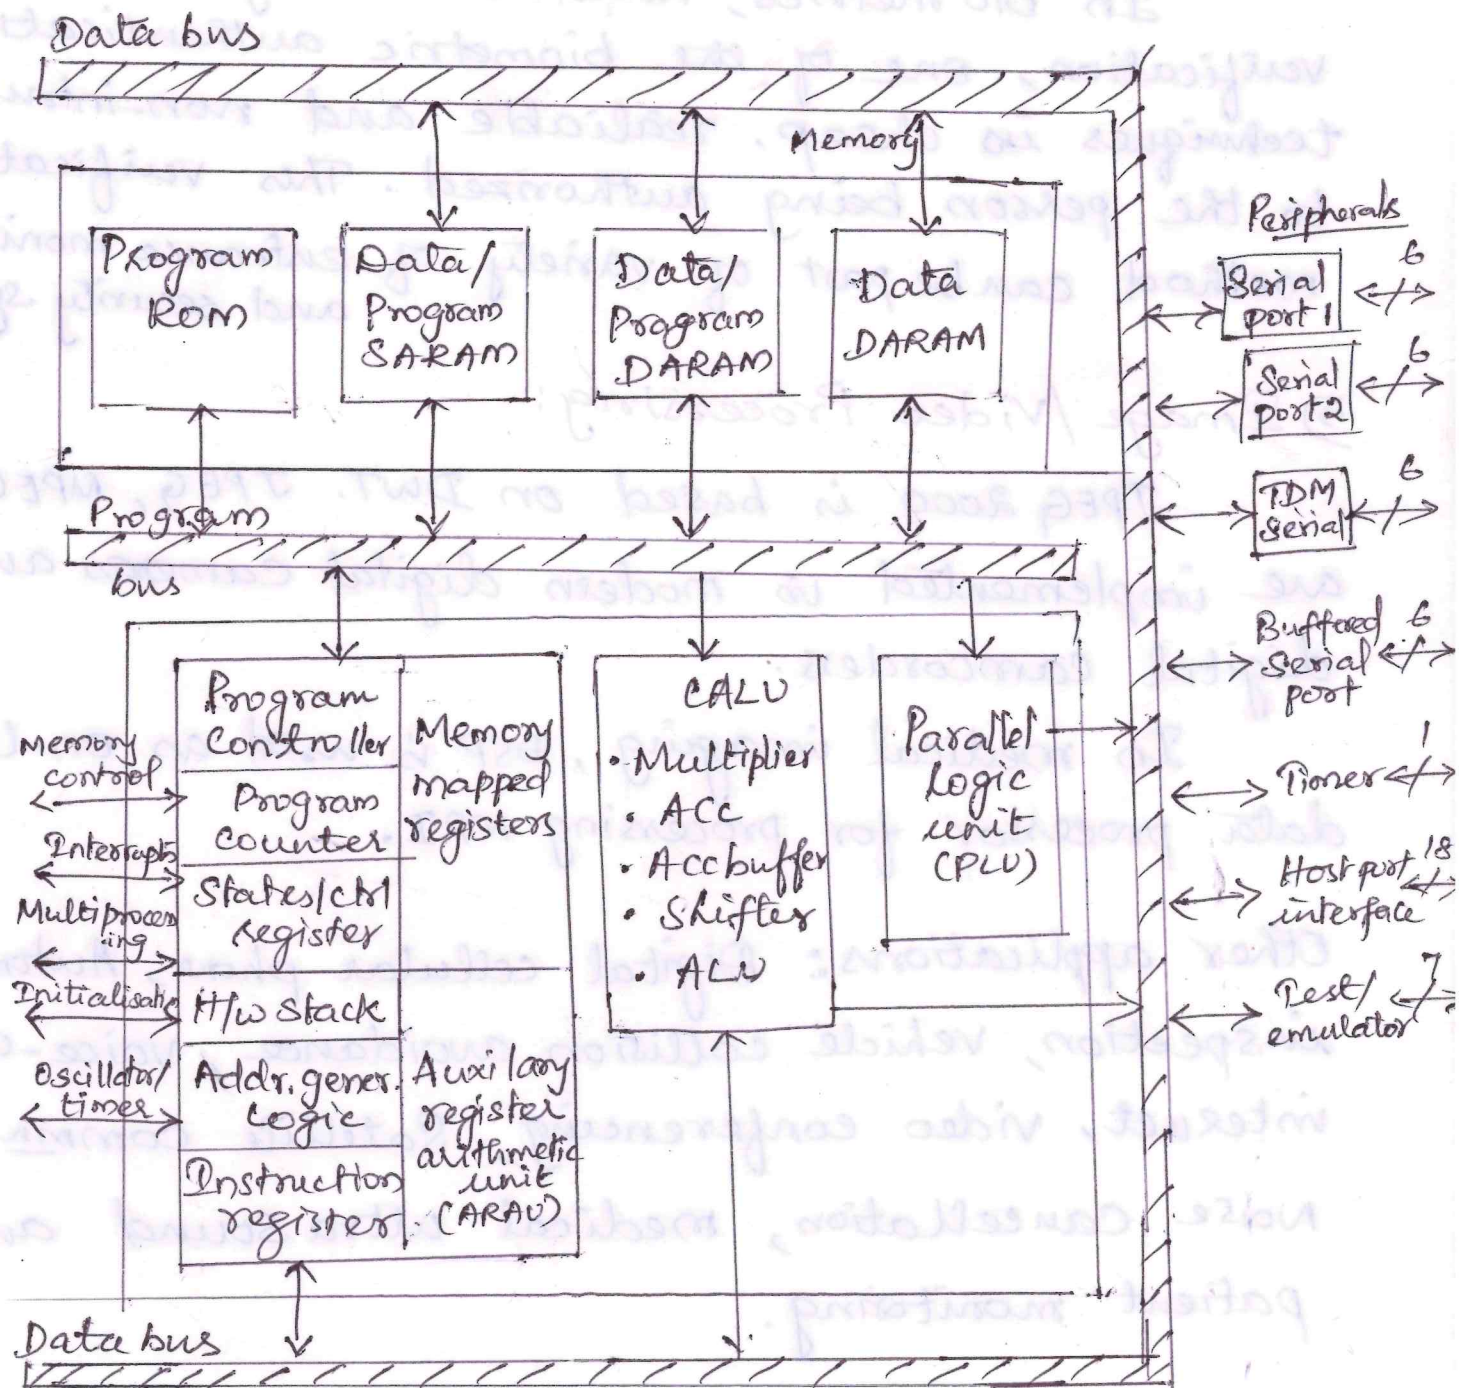 Data bus
Memory
Program
ROM
Data/
Program
SARAM
Data/
Program
DARAM
Data
DARAM
Peripherals
Serial
port 1
6
Serial
port 2
6
TDM
Serial
6
Buffered
Serial
port
6
Timer
1
Host port
interface
18
Test/
emulator
7
Program
bus
Memory
control
Interrupts
Multiprocess
ing
Initialisatio
Oscillator/
timer
Program
Controller
Program
Counter
States/ctrl
register
H/w Stack
Addr. gener.
Logic
Instruction
register
Memory
mapped
registers
Auxilary
register
arithmetic
unit
(ARAU)
CALU
• Multiplier
• ACC
• Acc buffer
• Shifter
• ALU
Parallel
Logic
unit
(PLU)
Data bus